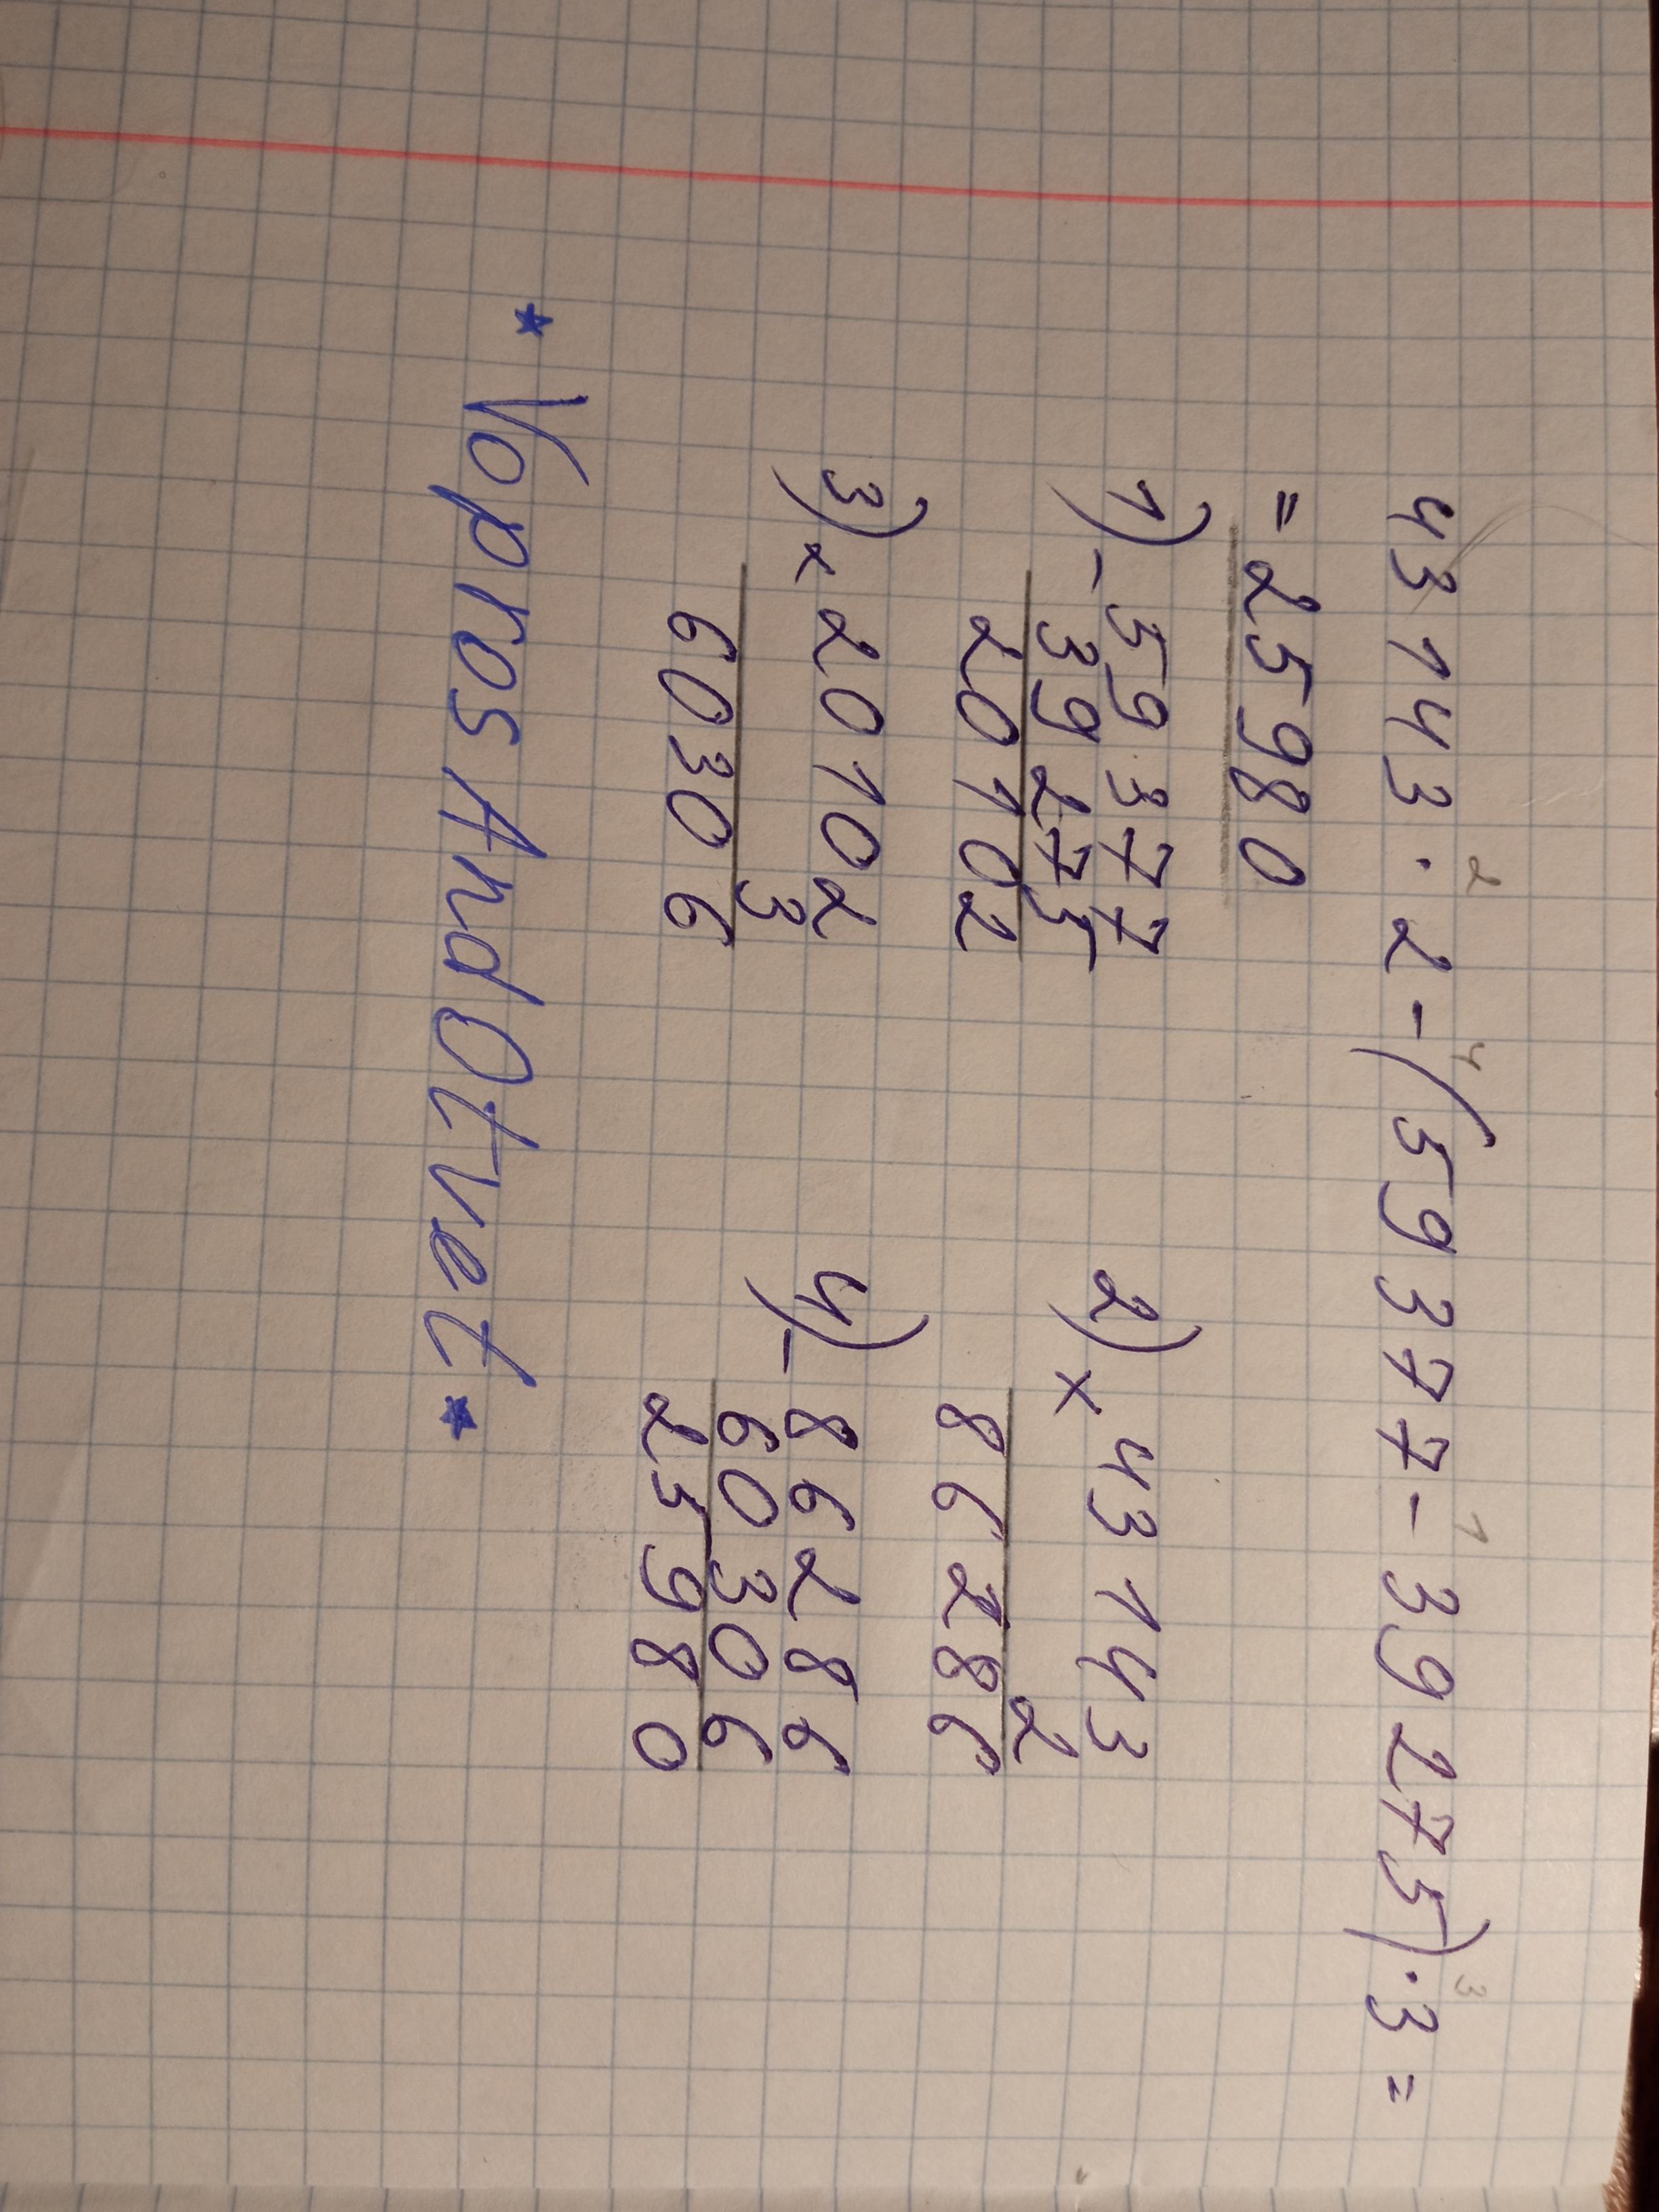 2 4 1 3
43143 · 2 - (59377 - 39275) · 3 =
= 25980
1) - 59377
39275
20102
2) × 43143
2
86286
3) × 20102
3
60306
4) - 86286
60306
25980
* VoprosAndOtvet *